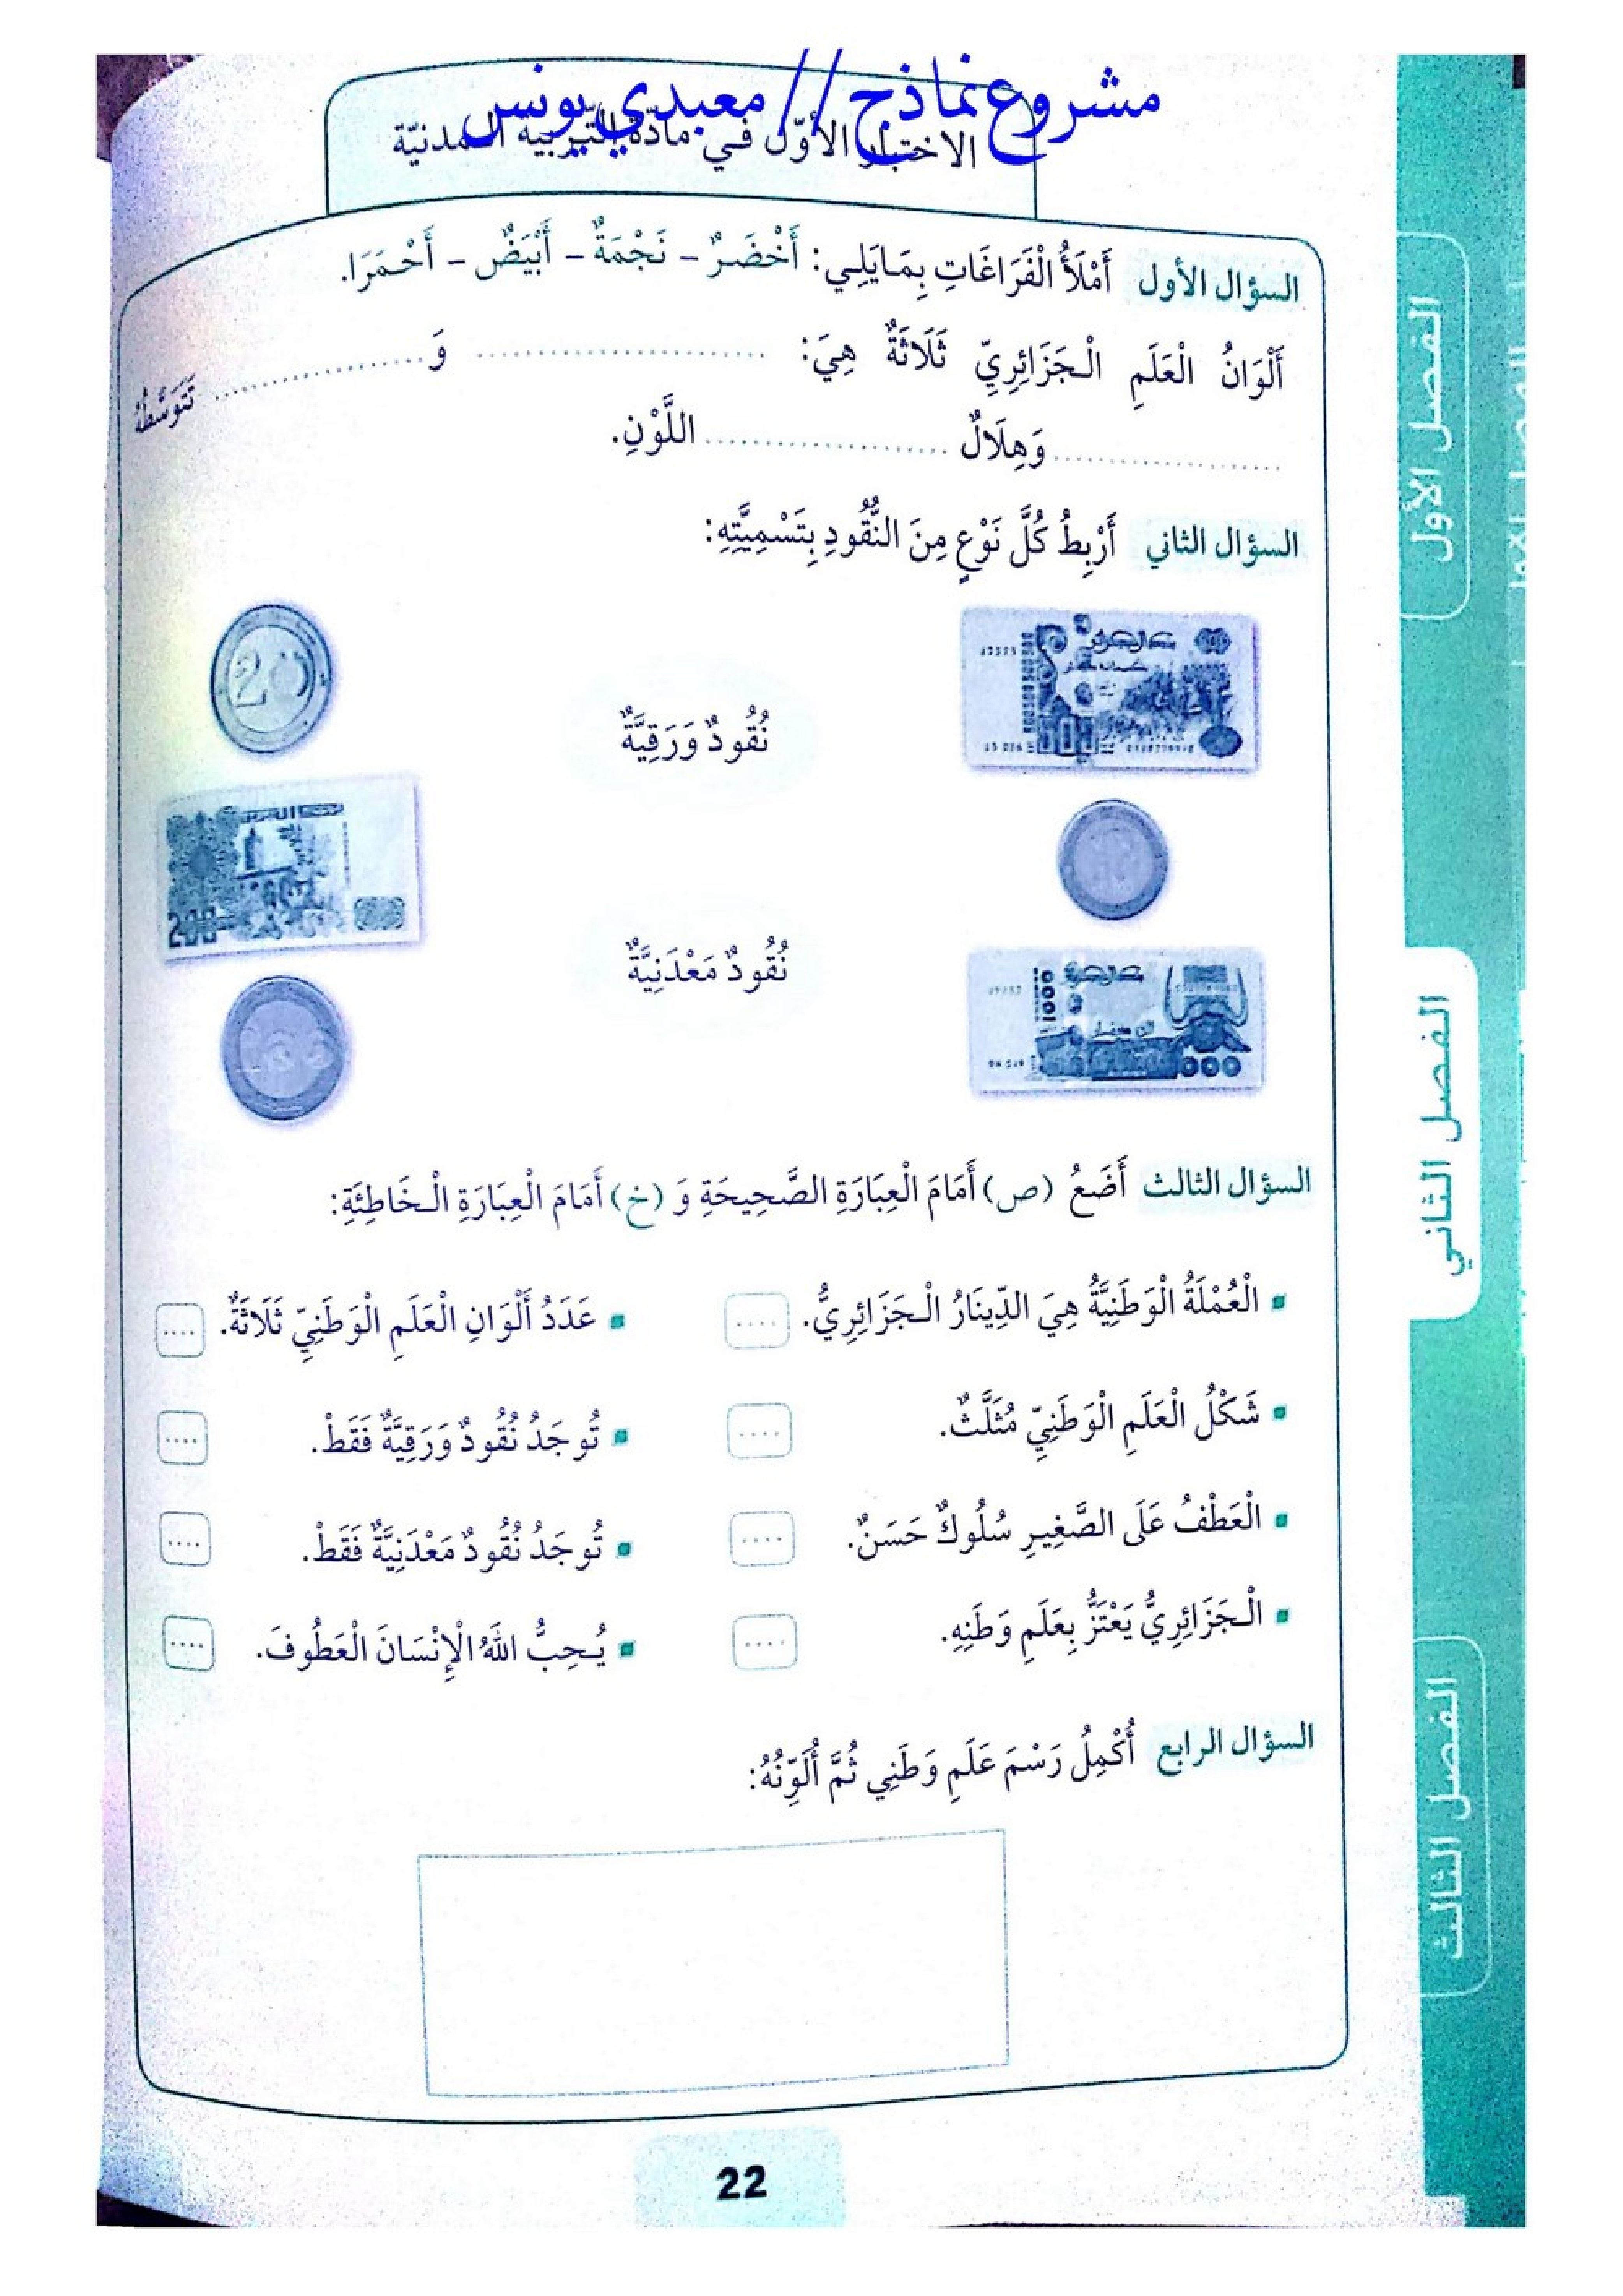 مشروع نماذج // معبدي يونس
الاختبار الأوّل في مادّة التّربية المدنيّة
السؤال الأول أَمْلَأُ الْفَرَاغَاتِ بِمَايَلِي: أَخْضَرٌ - نَجْمَةٌ - أَبْيَضٌ - أَحْمَرَا.
أَلْوَانُ الْعَلَمِ الْجَزَائِرِيِّ ثَلَاثَةٌ هِيَ: .................... وَ .................... تَتَوَسَّطُهُ
.................... وَهِلَالٌ .................... اللَّوْنِ.
السؤال الثاني أَرْبِطُ كُلَّ نَوْعٍ مِنَ النُّقُودِ بِتَسْمِيَّتِهِ:
20
نُقُودٌ وَرَقِيَّةٌ
200
نُقُودٌ مَعْدَنِيَّةٌ
السؤال الثالث أَضَعُ (ص) أَمَامَ الْعِبَارَةِ الصَّحِيحَةِ وَ (خ) أَمَامَ الْعِبَارَةِ الْخَاطِئَةِ:
الْعُمْلَةُ الْوَطَنِيَّةُ هِيَ الدِّينَارُ الْجَزَائِرِيُّ. ....
عَدَدُ أَلْوَانِ الْعَلَمِ الْوَطَنِيِّ ثَلَاثَةٌ. ....
شَكْلُ الْعَلَمِ الْوَطَنِيِّ مُثَلَّثٌ. ....
تُوجَدُ نُقُودٌ وَرَقِيَّةٌ فَقَطْ. ....
الْعَطْفُ عَلَى الصَّغِيرِ سُلُوكٌ حَسَنٌ. ....
تُوجَدُ نُقُودٌ مَعْدَنِيَّةٌ فَقَطْ. ....
الْجَزَائِرِيُّ يَعْتَزُّ بِعَلَمِ وَطَنِهِ. ....
يُحِبُّ اللهُ الْإِنْسَانَ الْعَطُوفَ. ....
السؤال الرابع أُكْمِلُ رَسْمَ عَلَمِ وَطَنِي ثُمَّ أُلَوِّنُهُ:
22
الفصل الأول
الفصل الثاني
الفصل الثالث